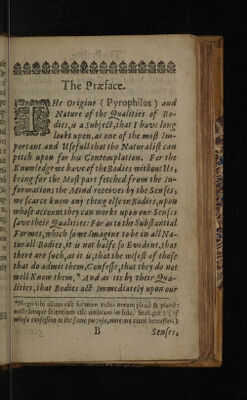 The Præface.
THe Origine (Pyrophilus) and
Nature of the Qualities of Bo-
dies, is a Subject, that I have long
lookt upon, as one of the most Im-
portant and Usefull that the Naturalist can
pitch upon for his Contemplation. For the
Knowledge we have of the Bodies without Us,
being for the Most part fetched from the In-
formations the Mind receives by the Senses,
we scarce know any thing else in Bodies, upon
whose account they can worke upon our Senses
save their Qualities: For as to the Substantial
Formes, which some Imagine to be in all Na-
tural Bodies, it is not halfe so Evident, that
there are such, as it is, that the wisest of those
that do admit them, Confesse, that they do not
well Know them.* And as its by their Qua-
lities, that Bodies act Immediately upon our
*Nego tibi ullam esse formam nobis notam plenè & planè:
nostramque scientiam esse umbram in sole. Scaliger: (of
whose confession to the same purpose, more are cited hereafter.)
B Senses,